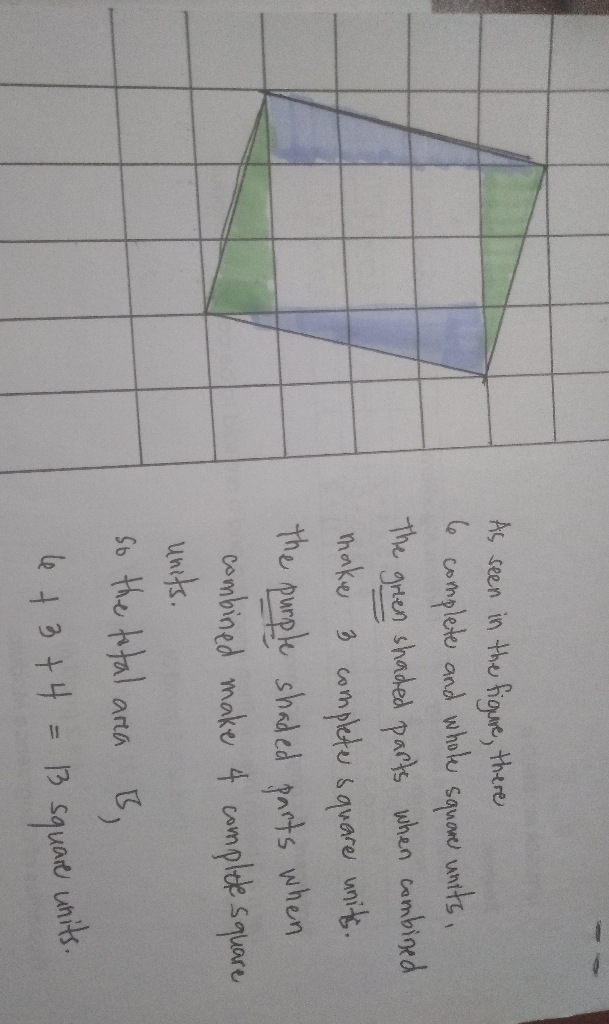 As seen in the figure, there
6 complete and whole square units,
The green shaded parts when combined
make 3 complete square units.
The purple shaded parts when
combined make 4 complete square
units.
So the total area is,
6 + 3 + 4 = 13 square units.